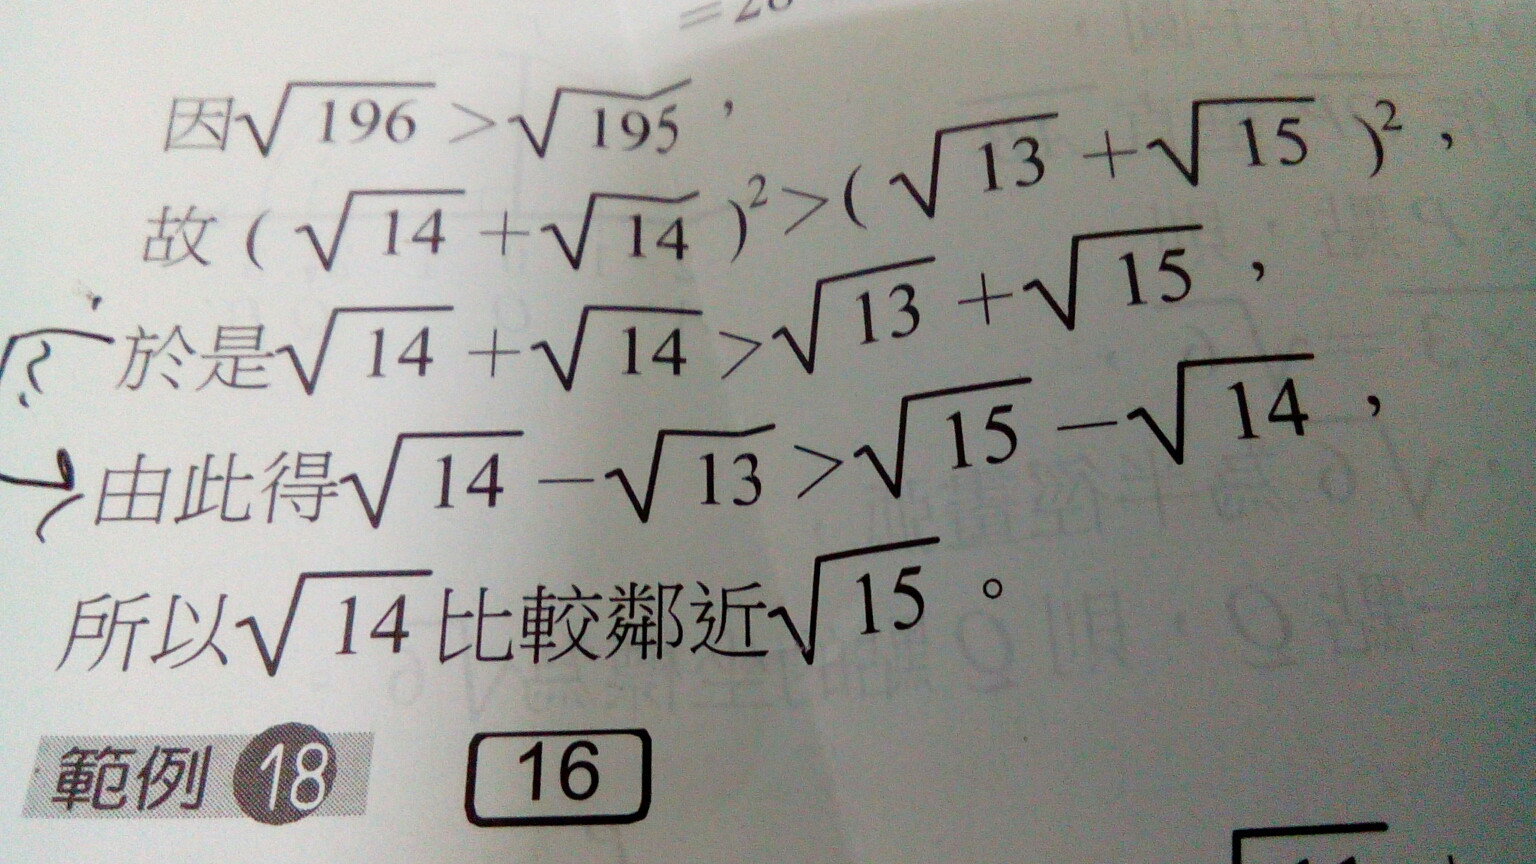 因√196 > √195，
故 ( √14 + √14 )²>( √13 + √15 )²，
於是√14 + √14 > √13 + √15，
?
由此得√14 − √13 > √15 − √14，
所以√14 比較鄰近√15。
範例 18 16